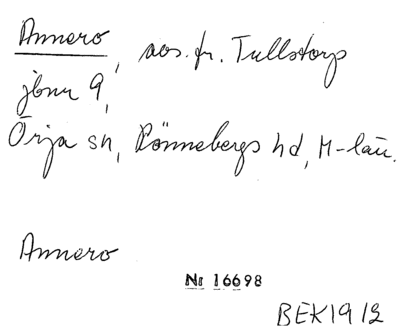 Annero, avs. fr. Tullstorp
jbnr 9,
Örja sn, Rönnebergs hd, M-län.
Annero
Nr 16698
BEK1912